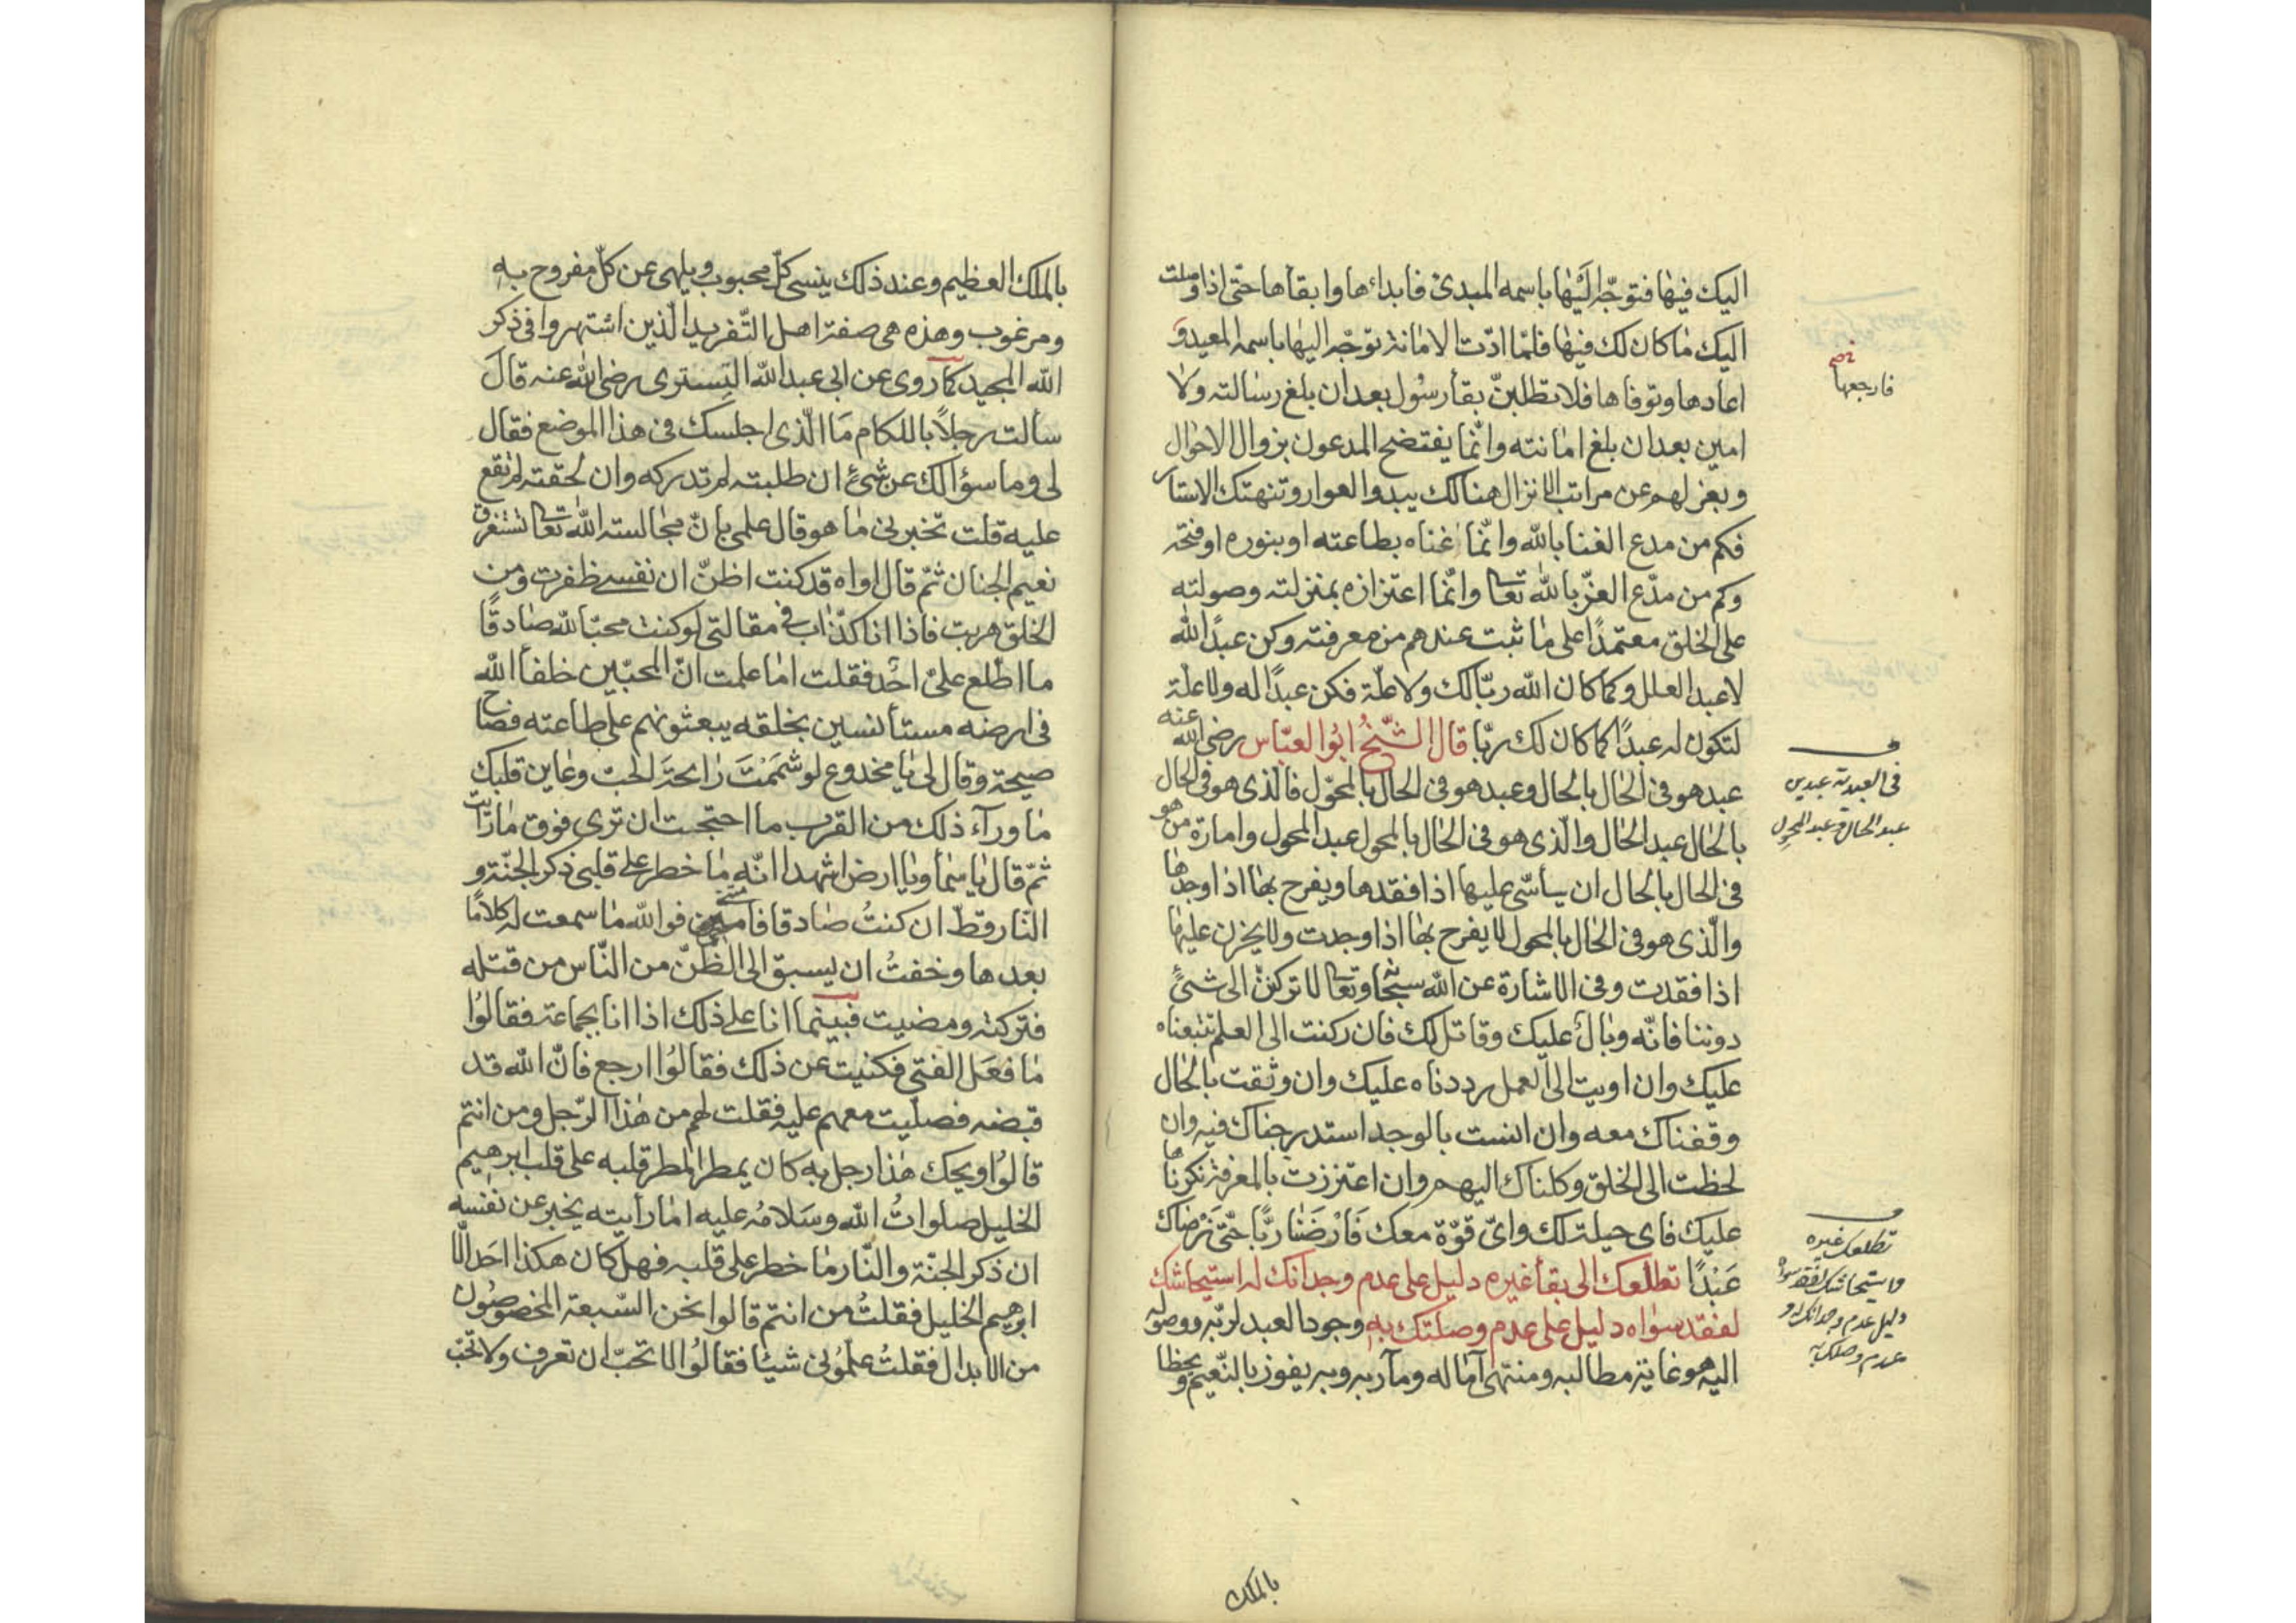 اليك فيها فتوجّه اليها باسمه المبدئ فابداءها وابقاءها حتى اذا وصلت
اليك ما كان لك فيها فلمّا ادّت الامانة توجّه اليها باسمه المعيد و
فارجعها
اعادها وتوفاها فلا تطلبنّ بقأ رسول بعد ان بلغ رسالته ولا
امين بعد ان بلغ امانته وانّما يفتضح المدعون بزوال الاحوال
وبعزلهم عن مراتب الانزال هنالك يبدوا العوار وتنهتك الاستار
فكم من مدع الغنا بالله وانّما غناه بطاعته او بنوره او فتحه
وكم من مدّع العزّ بالله تعا وانّما اعتزازه بمنزلته وصولته
على الخلق معتمدًا على ما ثبت عندهم من معرفته وكن عبدًا لله
لا عبد العلل وكما كان الله ربّا لك ولا علّة فكن عبدًا له ولا علّة
لتكون له عبدًا كما كان لك ربّا قال الشّيخ ابوا العبّاس رضى الله عنه
فى العبدية عبدين
عبد الحال وعبد المحوِل
عبد هو فى الحال بالحال وعبد هو فى الحال بالمحوّل فالّذى هو فى الحال
بالحال عبد الحال والّذى هو فى الحال بالمحول عبد المحول وامارة من هو
فى الحال بالحال ان يأسّى عليها اذا فقدها ويفرح بها اذا وجدها
والّذى هو فى الحال بالمحول لا يفرح بها اذا وجدت ولا يحزن عليها
اذا فقدت وفى الاشارة عن الله سبحا وتعا لا تركننّ الى شئ
دوننا فانّه وبال عليك وقاتل لك فان ركنت الى العلم تتبعناه
عليك وان اويت الى العمل رددناه عليك وان وثقت بالحال
وقفناك معه وان انست بالوجد استدرجناك فيه وان
لحظت الى الخلق وكلناك اليهم وان اعتززت بالمعرفة نكرناها
عليك فاى حيلة لك واىّ قوّة معك فَارْضَنا ربًّا حتّى نرضاك
تطلعك غيره
واستيحاشك لفقد سواه
دليل عدم وجدانك له و
عدم وصلتك به
عَبْدًا تطلّعك الى بقأ غيره دليل على عدم وجدانك له استيحاشك
لفقد سواه دليل على عدم وصلتك به وجود العبد لربّه ووصوله
اليه هو غاية مطالبه ومنتهى آماله ومآربه وبه يفوز بالنّعيم ويحظا
بالملك
بالملك العظيم وعند ذلك ينسى كلّ محبوب ويلهى عن كلّ مفروح به
ومرغوب وهذه هى صفة اهل التّفريد الّذين اشتهروا فى ذكر
الله المجيد كما روى عن ابى عبد الله التسترى رضى الله عنه قال
سألت رجلاً باللكام مَا الّذى اجلسك فى هذا الموضع فقال
لى وما سؤالك عن شئ ان طلبته لم تدركه وان لحقته لم تقع
عليه قلت تخبرنى ما هو قال علمى بانّ مجالسة الله تعا تستغرق
نعيم الجنان ثمّ قال اواه قد كنت اظنّ ان نفسى ظفرت ومن
الخلق هربت فاذا انا كذّاب فى مقالتى لو كنت محبّا لله صادقًا
ما اطّلع علىّ احد فقلت اما علمت انّ المحبّين خلفأ الله
فى ارضه مستأنسين بخلقه يبعثونهم على طاعته فصاح
صيحة وقال لى يا مخدوع لو شَمَمْتَ رائحة الحبّ وعاين قلبك
ما ورآء ذلك من القرب ما احتجت ان ترى فوق ما رأيت
ثمّ قال يا سمأ ويا ارض اشهدا انّه ما خطر على قلبى ذكر الجنّة و
النّار قطّ ان كنتُ صادقا فامتنى فوالله ما سمعت له كلامًا
بعدها وخفتُ ان يسبق الى الظّنّ من النّاس من قتله
فتركته ومضيت فبينما انا على ذلك اذا انا بجماعة فقالوا
ما فعَل الفتى فكنيت عن ذلك فقالوا ارجع فانّ الله قد
قبضه فصلّيت معهم عليه فقلت لهم من هذا الرّجل ومن انتم
قالوا ويحك هذا رجل به كان يمطر المطر قلبه على قلب ابرهيم
الخليل صلواتُ الله وسَلامُه عليه اما رأيته يخبر عن نفسه
ان ذكر الجنّة والنّار ما خطر على قلبه فهل كان هكذا احد الّا
ابرهيم الخليل فقلتُ من انتم قالوا نحن السّبعة المخصوصون
من الابدال فقلتُ علّمونى شيئا فقالوا لا تحبّ ان تعرف ولا تحبّ